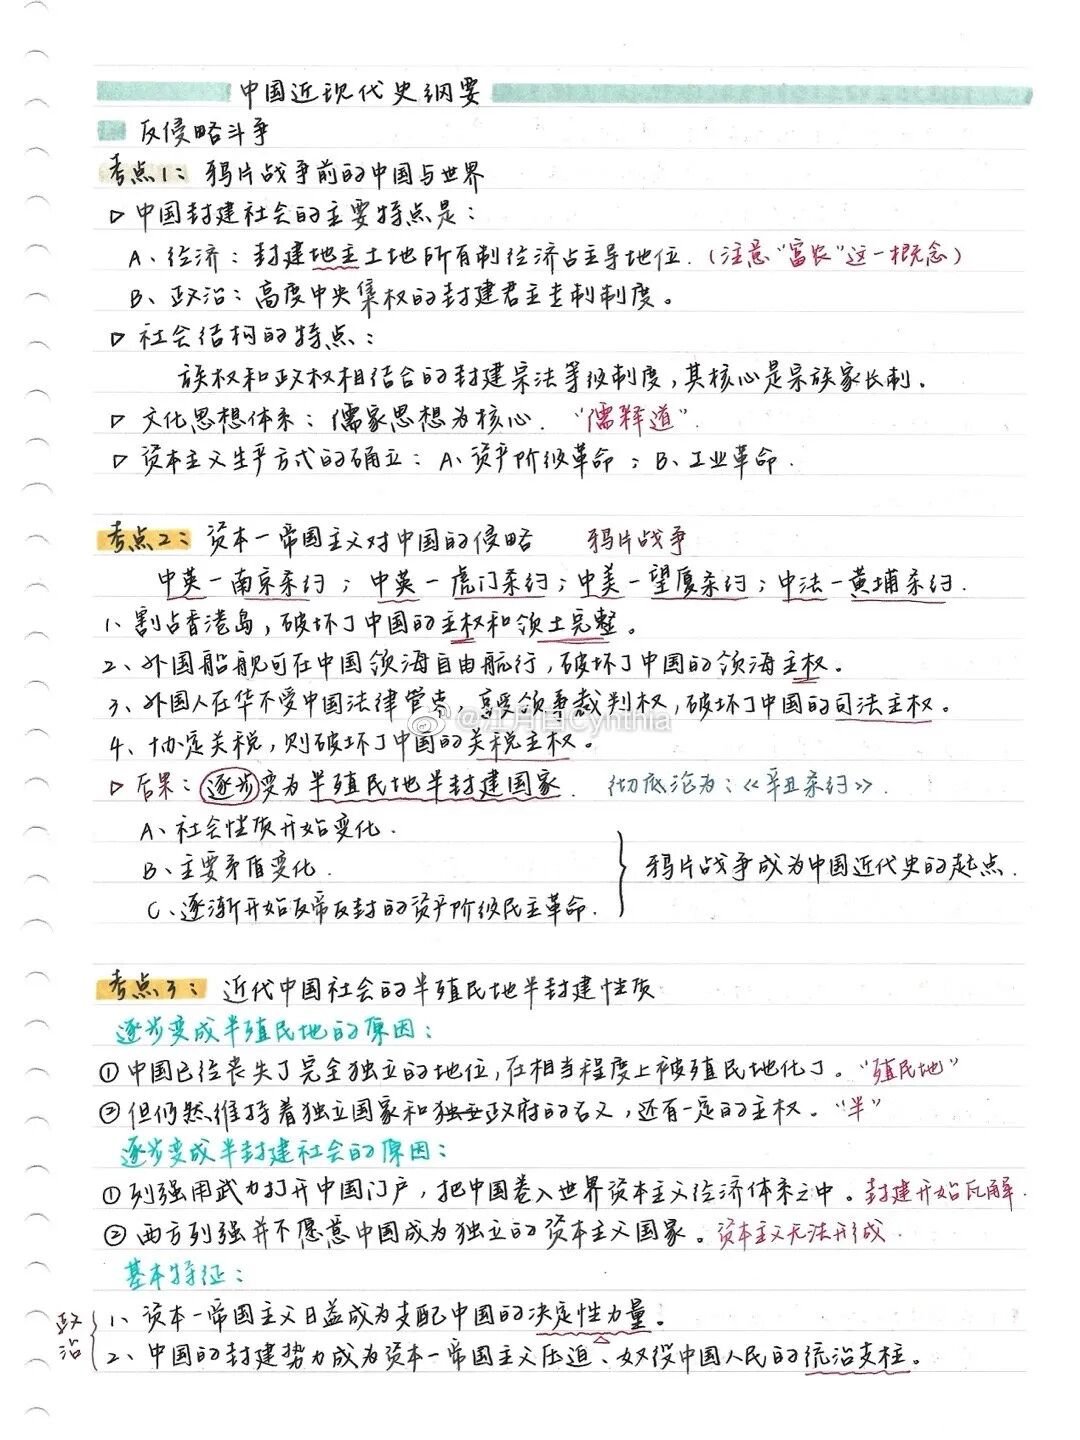 中国近现代史纲要
反侵略斗争
考点1：鸦片战争前的中国与世界
▷ 中国封建社会的主要特点是：
A、经济：封建地主土地所有制经济占主导地位.（注意“富农”这一概念）
B、政治：高度中央集权的封建君主专制制度。
▷ 社会结构的特点：
族权和政权相结合的封建宗法等级制度，其核心是宗族家长制.
▷ 文化思想体系：儒家思想为核心. “儒释道”
▷ 资本主义生产方式的确立：A、资产阶级革命；B、工业革命.
考点2：资本－帝国主义对中国的侵略 鸦片战争
中英－南京条约；中英－虎门条约；中美－望厦条约；中法－黄埔条约.
1、割占香港岛，破坏了中国的主权和领土完整。
2、外国船舰可在中国领海自由航行，破坏了中国的领海主权。
3、外国人在华不受中国法律管束，享受领事裁判权，破坏了中国的司法主权。
@江月白Cynthia
4、协定关税，则破坏了中国的关税主权。
▷ 后果：逐步变为半殖民地半封建国家. 彻底沦为：《辛丑条约》.
A、社会性质开始变化.
B、主要矛盾变化. 鸦片战争成为中国近代史的起点.
C、逐渐开始反帝反封的资产阶级民主革命.
考点3：近代中国社会的半殖民地半封建性质
逐步变成半殖民地的原因：
①中国已经丧失了完全独立的地位，在相当程度上被殖民地化了。“殖民地”
②但仍然维持着独立国家和政府的名义，还有一定的主权。“半”
逐步变成半封建社会的原因：
①列强用武力打开中国门户，把中国卷入世界资本主义经济体系之中。封建开始瓦解.
②西方列强并不愿意中国成为独立的资本主义国家。资本主义无法形成.
基本特征：
政治
1、资本－帝国主义日益成为支配中国的决定性力量。
2、中国的封建势力成为资本－帝国主义压迫、奴役中国人民的统治支柱。